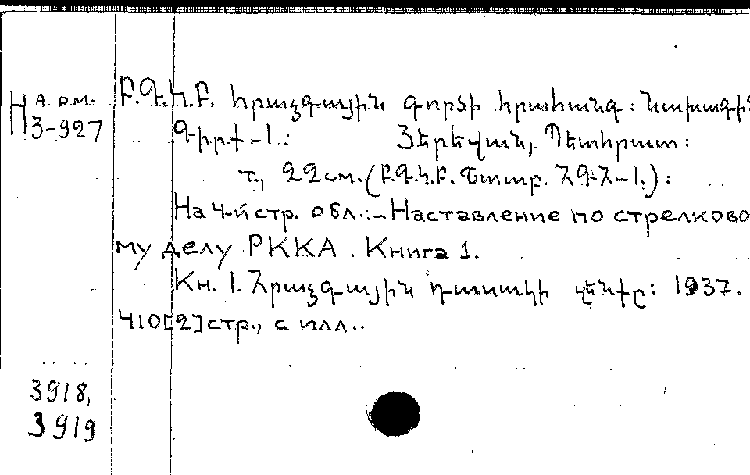 На арм.
3-927
Բ.Գ.Կ.Բ. հրաձգային գործի հրահանգ: Նախագիծ
Գիրք-1.: Յերեվան, Պետհրատ:
т., 22 см. (Բ.Գ.Կ.Բ.
На 4-й стр. обл.:- Наставление по стрелково
му делу РККА. Книга 1.
Кн. 1. Հրաձգային դասակի զենքը: 1937.
410[2] стр., с илл..
3918,
3919